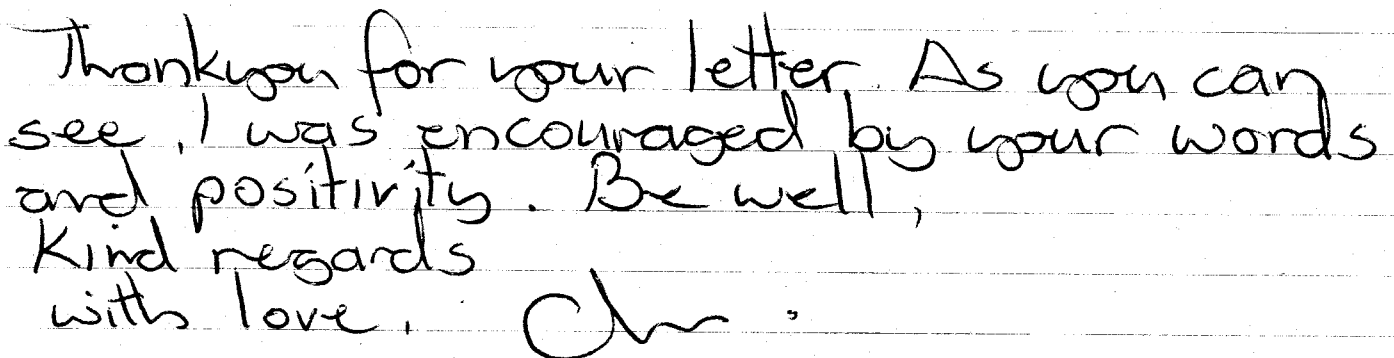 Thankyou for your letter. As you can
see, I was encouraged by your words
and positivity. Be well,
Kind regards
with love.